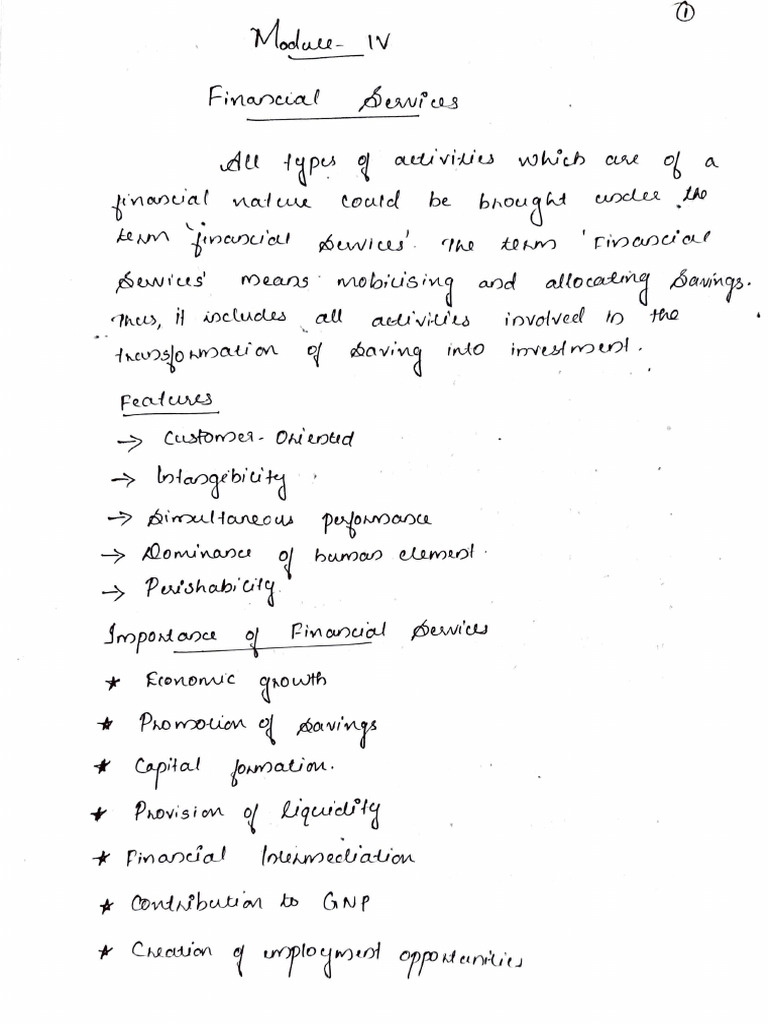 ①
Module - IV
Financial Services
All types of activities which are of a
financial nature could be brought under the
term 'financial services'. The term 'Financial
Services' means mobilising and allocating savings.
Thus, it includes all activities involved in the
transformation of saving into investment.
Features
→ Customer-Oriented
→ Intangibility
→ Simultaneous performance
→ Dominance of human element.
→ Perishability
Importance of Financial Services
★ Economic growth
★ Promotion of savings
★ Capital formation.
★ Provision of liquidity
★ Financial Intermediation
★ Contribution to GNP
★ Creation of employment opportunities